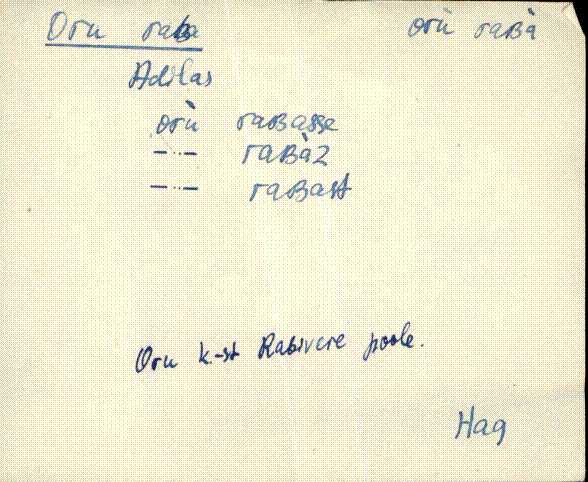 Oru raba
orù raʙà
Adilas
orù raʙasse
—..— raʙàz
—..— raʙast
Oru k.-st Rabivere poole.
Hag